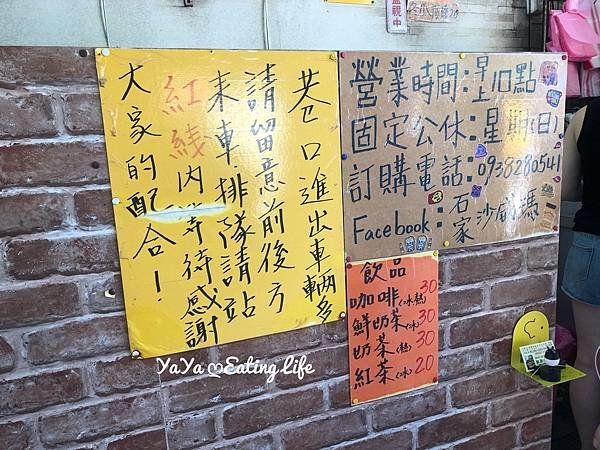 巷口進出車輛多
請留意前後方
來車排隊請站
紅綫內等待感謝
大家的配合！
營業時間：早上10點
固定公休：星期(日)
訂購電話：0938280541
Facebook：石家沙威瑪
飲品
咖啡(冰熱)30
鮮奶茶(冰)30
奶茶(熱)30
紅茶(冰)20
YaYa Eating Life